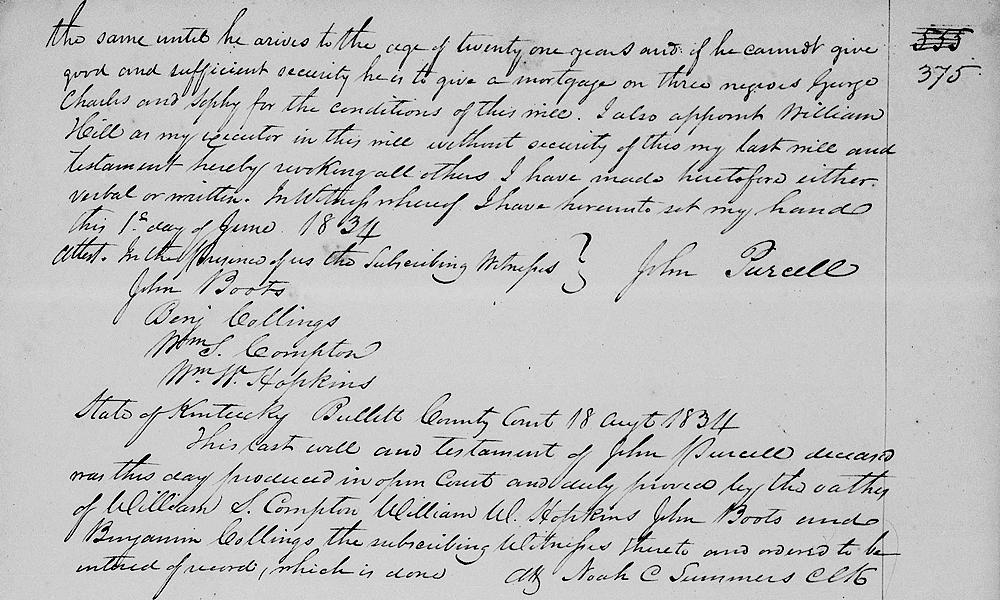 the same until he arives to the age of twenty one years and if he cannot give
good and sufficient security he is to give a mortgage on three negroes George
Charles and Sophy for the conditions of this will. I also appoint William
Hill as my executor in this will without security of this my last will and
testament hereby revoking all others I have made heretofore either
verbal or written. In Witness whereof I have hereunto set my hand
this 1st day of June 1834
Attest. In the Presence of us the Subscribing Witnesses } John Purcell
John Boots
Benj Collings
Wm S. Compton
Wm W. Hopkins
State of Kentucky Bullitt County Court 18 Augt 1834
This last will and testament of John Purcell deceased
was this day produced in open Court and duly proved by the oaths
of William S. Compton William W. Hopkins John Boots and
Benjamin Collings the subscribing Witnesses thereto and ordered to be
entered of record, which is done Att Noah C Summers Clk
335
375